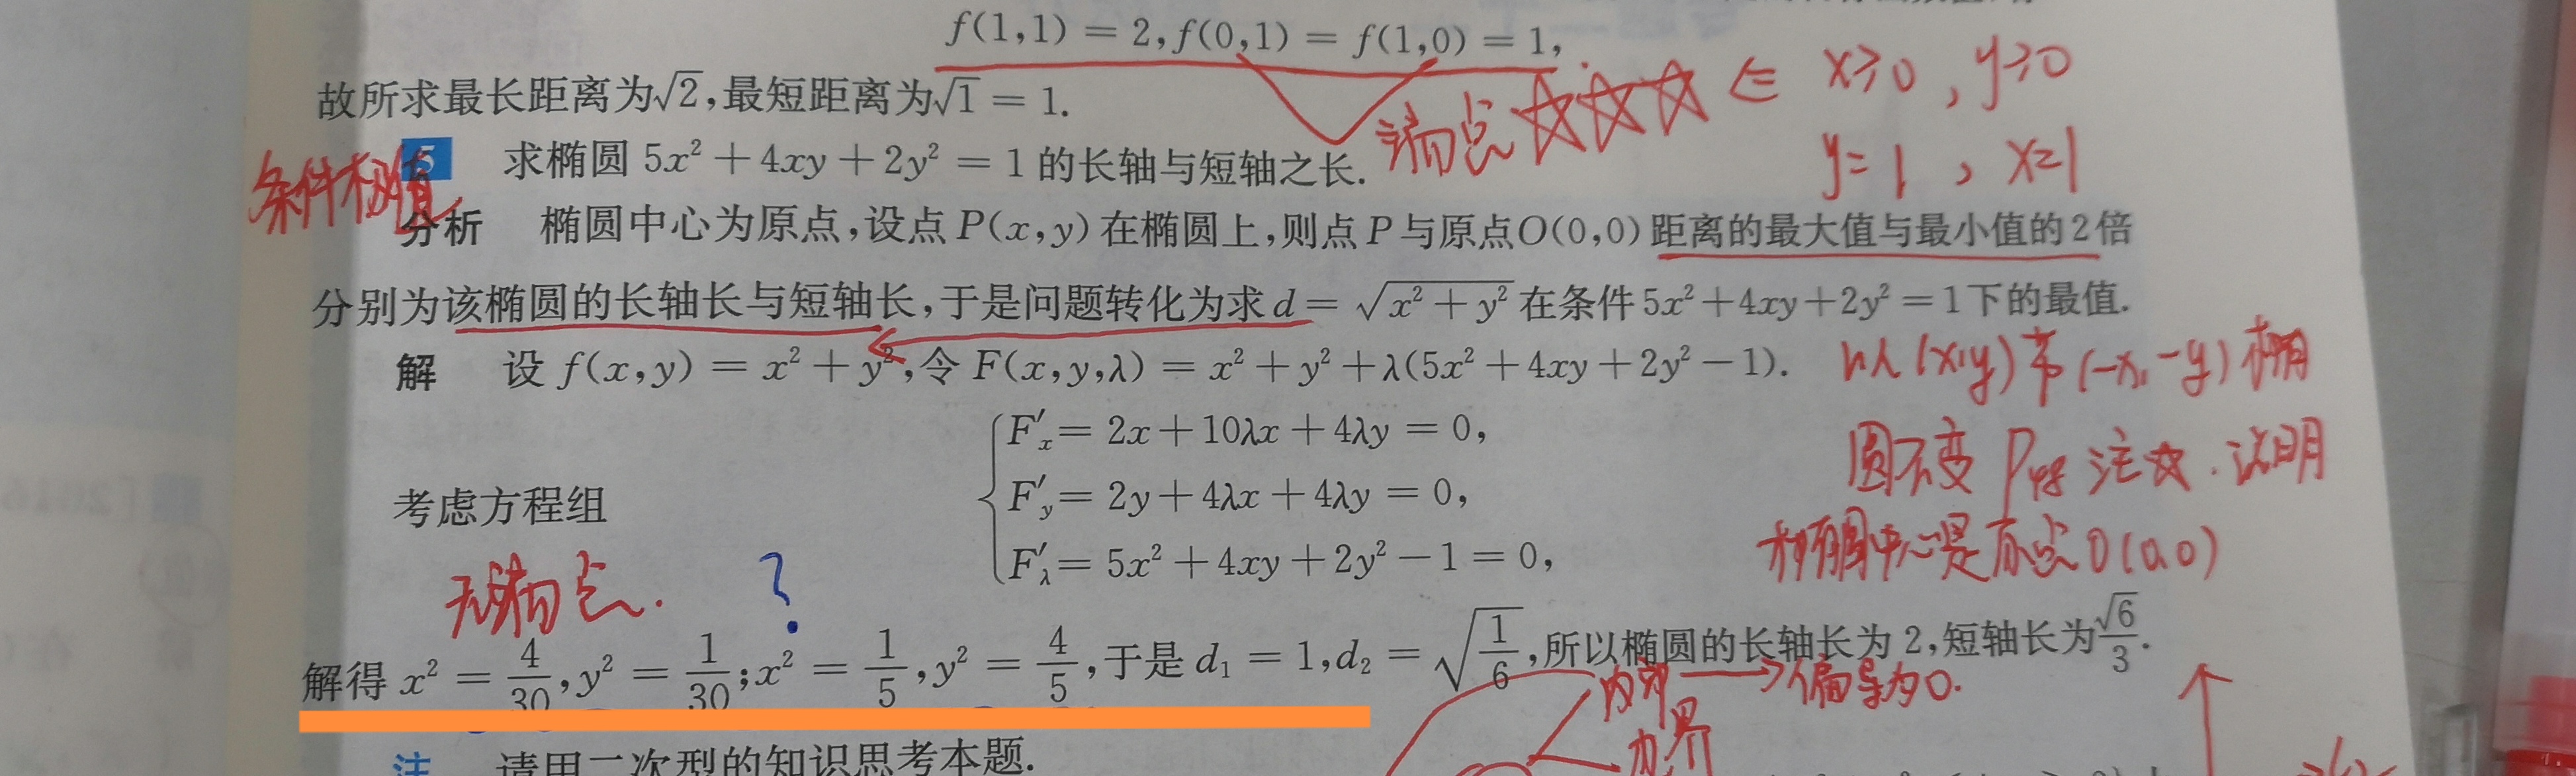 f(1,1) = 2, f(0,1) = f(1,0) = 1,
故所求最长距离为√2,最短距离为√1 = 1.
端点 ☆☆☆ ∈ x≥0, y≥0
y=1, x=1
条件极值
5 求椭圆 5x² + 4xy + 2y² = 1 的长轴与短轴之长.
分析 椭圆中心为原点,设点 P(x,y) 在椭圆上,则点 P 与原点O(0,0) 距离的最大值与最小值的2倍
分别为该椭圆的长轴长与短轴长,于是问题转化为求 d = √(x² + y²) 在条件 5x²+4xy+2y² = 1下的最值.
解 设 f(x,y) = x² + y²,令 F(x,y,λ) = x² + y² + λ(5x² + 4xy + 2y² − 1).
以(x,y)节(-x,-y)椭
圆不变 P 注☆.说明
椭圆中心是原点O(0,0)
考虑方程组
F′ₓ = 2x + 10λx + 4λy = 0,
F′y = 2y + 4λx + 4λy = 0,
F′λ = 5x² + 4xy + 2y² − 1 = 0,
无端点. ?
解得 x² = 4/30, y² = 1/30; x² = 1/5, y² = 4/5,于是 d₁ = 1, d₂ = √(1/6),所以椭圆的长轴长为 2,短轴长为 √6/3.
内部 → 偏导为0.
边界
注 请用二次型的知识思考本题.